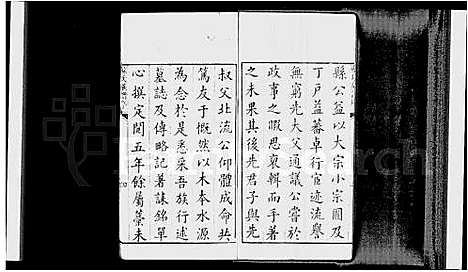 縣公益以大宗小宗圖及
丁戸益蕃卓行宦迹流譽
無窮先大父通議公嘗於
政事之暇思裒輯而手著
之未果其後先君子與先
叔父北流公仰體成命共
篤友于慨然以木本水源
為念於是悉采吾族行述
墓誌及傳略記著誄銘單
心撰定閱五年餘屬藁未